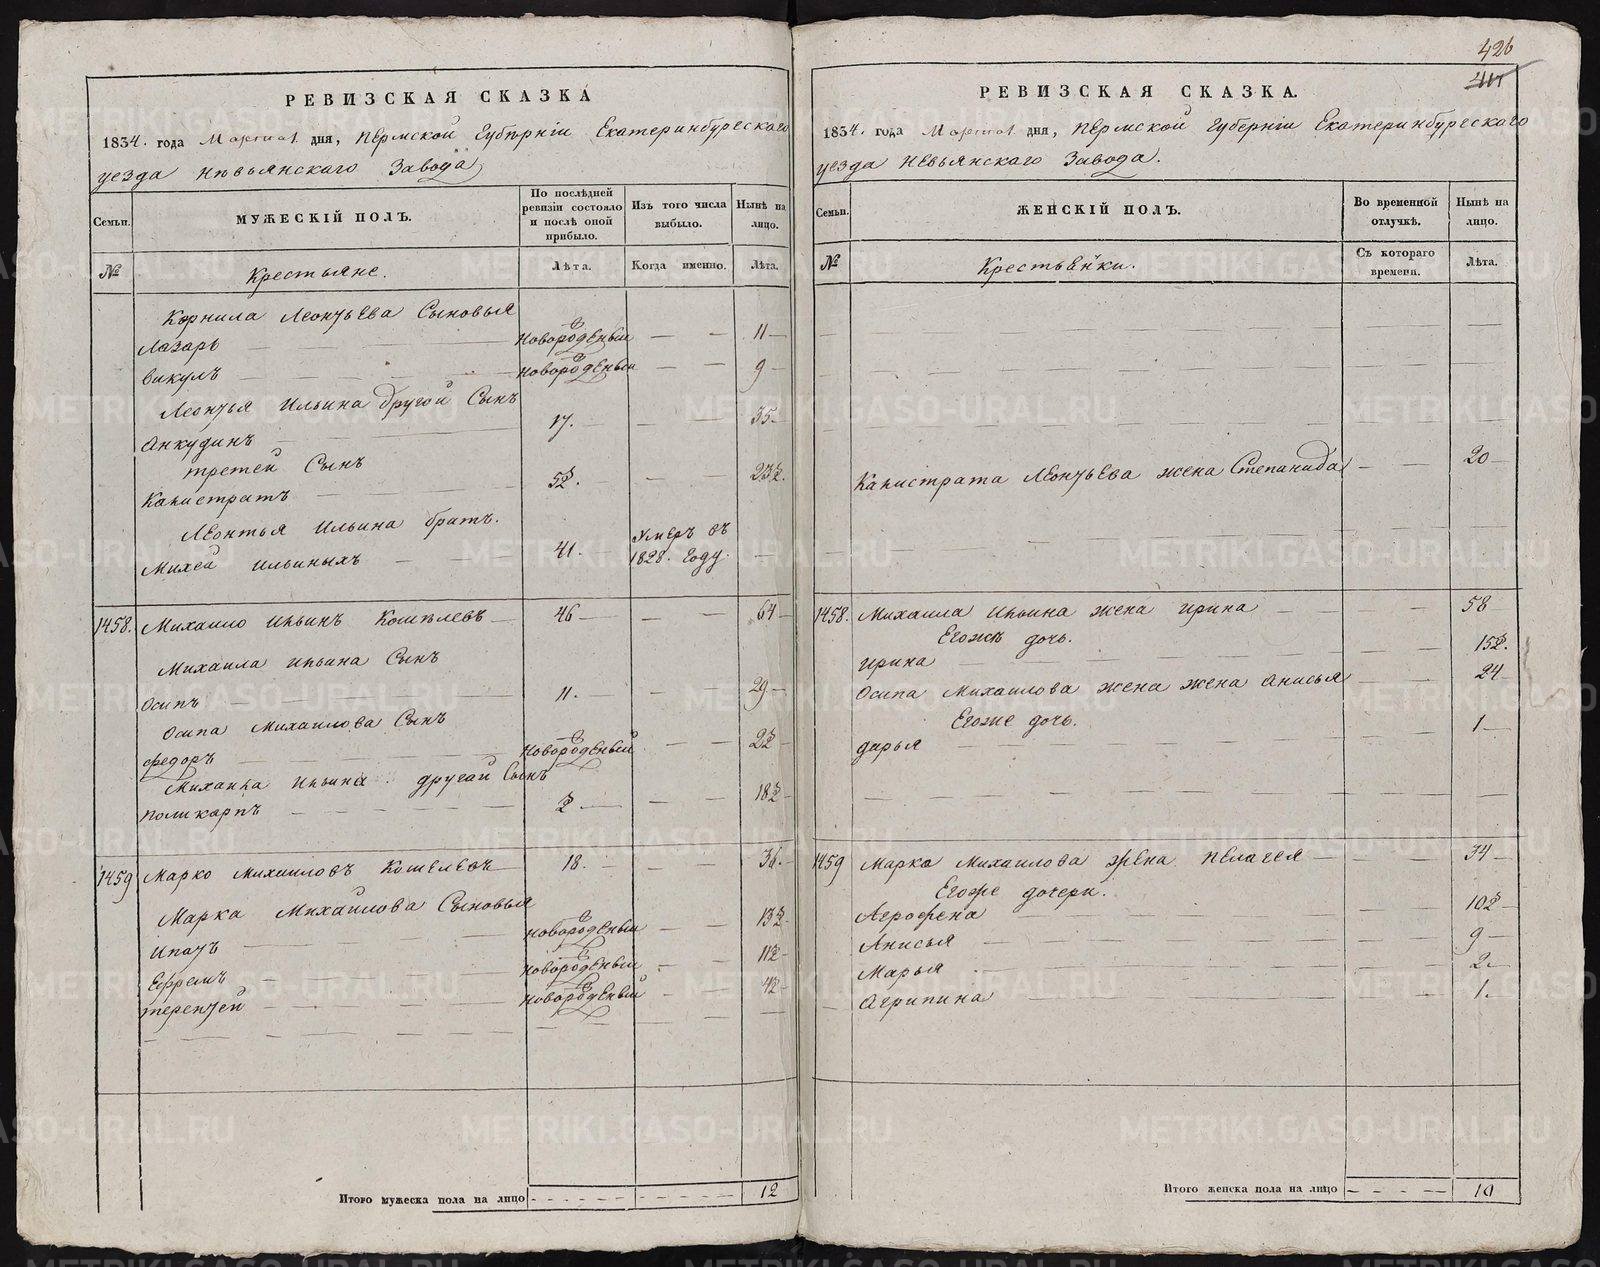 426
РЕВИЗСКАЯ СКАЗКА
1834. года Марта 1 дня, Пермской Губерніи Екатеринбургскаго
уезда Невьянскаго Завода
Семьи.
МУЖЕСКІЙ ПОЛЪ.
По послѣдней ревизіи состояло и послѣ оной прибыло.
Изъ того числа выбыло.
Нынѣ на лицо.
№
Крестьяне.
Лѣта.
Когда именно.
Лѣта.
Корнила Леонтьева Сыновья
Лазарь — новорожденный — — 11
Викулъ — новорожденный — — 9
Леонтья Ильина другой Сынъ
Анкудинъ — 17. — — 35
третей Сынъ
Калистратъ — 5½. — — 23½.
Леонтья Ильина братъ.
Михей Ильиныхъ — 41. Умеръ въ 1828. Году. —
1458. Михаило Ильинъ Кошелевъ — 46 — — 64
Михаила Ильина Сынъ
Осипъ — 11. — — 29
Осипа Михаилова Сынъ
Федоръ — новорожденный — — 2½
Михаила Ильина другой Сынъ
Поликарпъ — ½. — — 18½
1459 Марко Михаиловъ Кошелевъ — 18. — — 36.
Марка Михаилова Сыновья
Ипатъ — новорожденный — — 13½
Ефремъ — новорожденный — — 11½
Терентей — новорожденный — — 4½
Итого мужеска пола на лицо 12
РЕВИЗСКАЯ СКАЗКА.
1834. года Марта 1 дня, Пермской Губерніи Екатеринбургскаго
уезда Невьянскаго Завода.
Семьи.
ЖЕНСКІЙ ПОЛЪ.
Во временной отлучкѣ.
Нынѣ на лицо.
№
Крестьянки.
Съ котораго времени.
Лѣта.
Калистрата Леонтьева жена Степанида — — 20
1458. Михаила Ильина жена Ирина — — 58
Егожъ дочь.
Ирина — — 15½.
Осипа Михаилова жена жена Анисья — — 24
Егоже дочь.
Дарья — — 1
1459 Марка Михаилова жена Пелагея — — 34
Егоже дочери.
Агрофена — — 10½
Анисья — — 9
Марья — — 2.
Агрипина — — 1.
Итого женска пола на лицо 10
METRIKI.GASO-URAL.RU